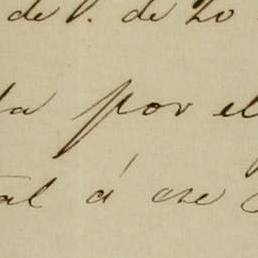 de V. de 20
da por el
tal á ese